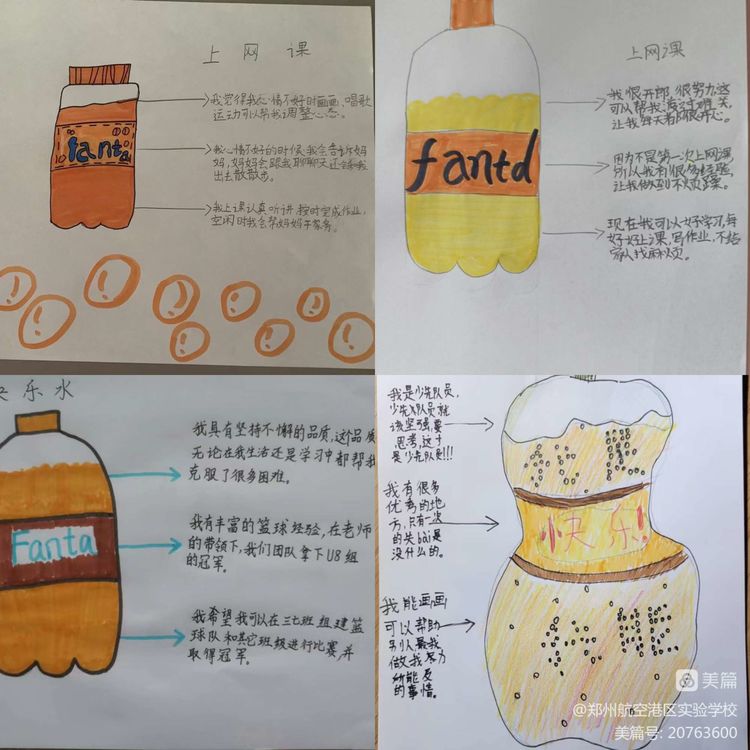 上网课
我觉得我心情不好时画画、唱歌
运动可以帮我调整心态。
fanta
我心情不好的时候,我会告诉妈
妈,妈妈会跟我聊聊天还会带我
出去散散步。
我上课认真听讲,按时完成作业,
空闲时我会帮妈妈干家务。
上网课
我很开郎,很努力,这
可以帮我度过难关,
让我每天都很开心。
fantd
因为不是第一次上网课
所以我有很多经验,
让我做到不烦躁。
现在我可以好学习,每
好好上课,写作业,不给
家人找麻烦。
快乐水
我具有坚持不懈的品质,这个品质
无论在我生活还是学习中都帮我
克服了很多困难。
Fanta
我有丰富的篮球经验,在老师
的带领下,我们团队拿下U8组
的冠军。
我希望我可以在三七班组建篮
球队和其它班级进行比赛并
取得冠军。
我是少先队员,
少先队员就
该坚强,要
思考,这才
是少先队员!!!
我有很多
优秀的地
方,只有一次
的失bai是
没什么的。
快乐!
我能画画
可以帮助
别人,
做我努力
所能及
的事情。
美篇
@郑州航空港区实验学校
美篇号: 20763600